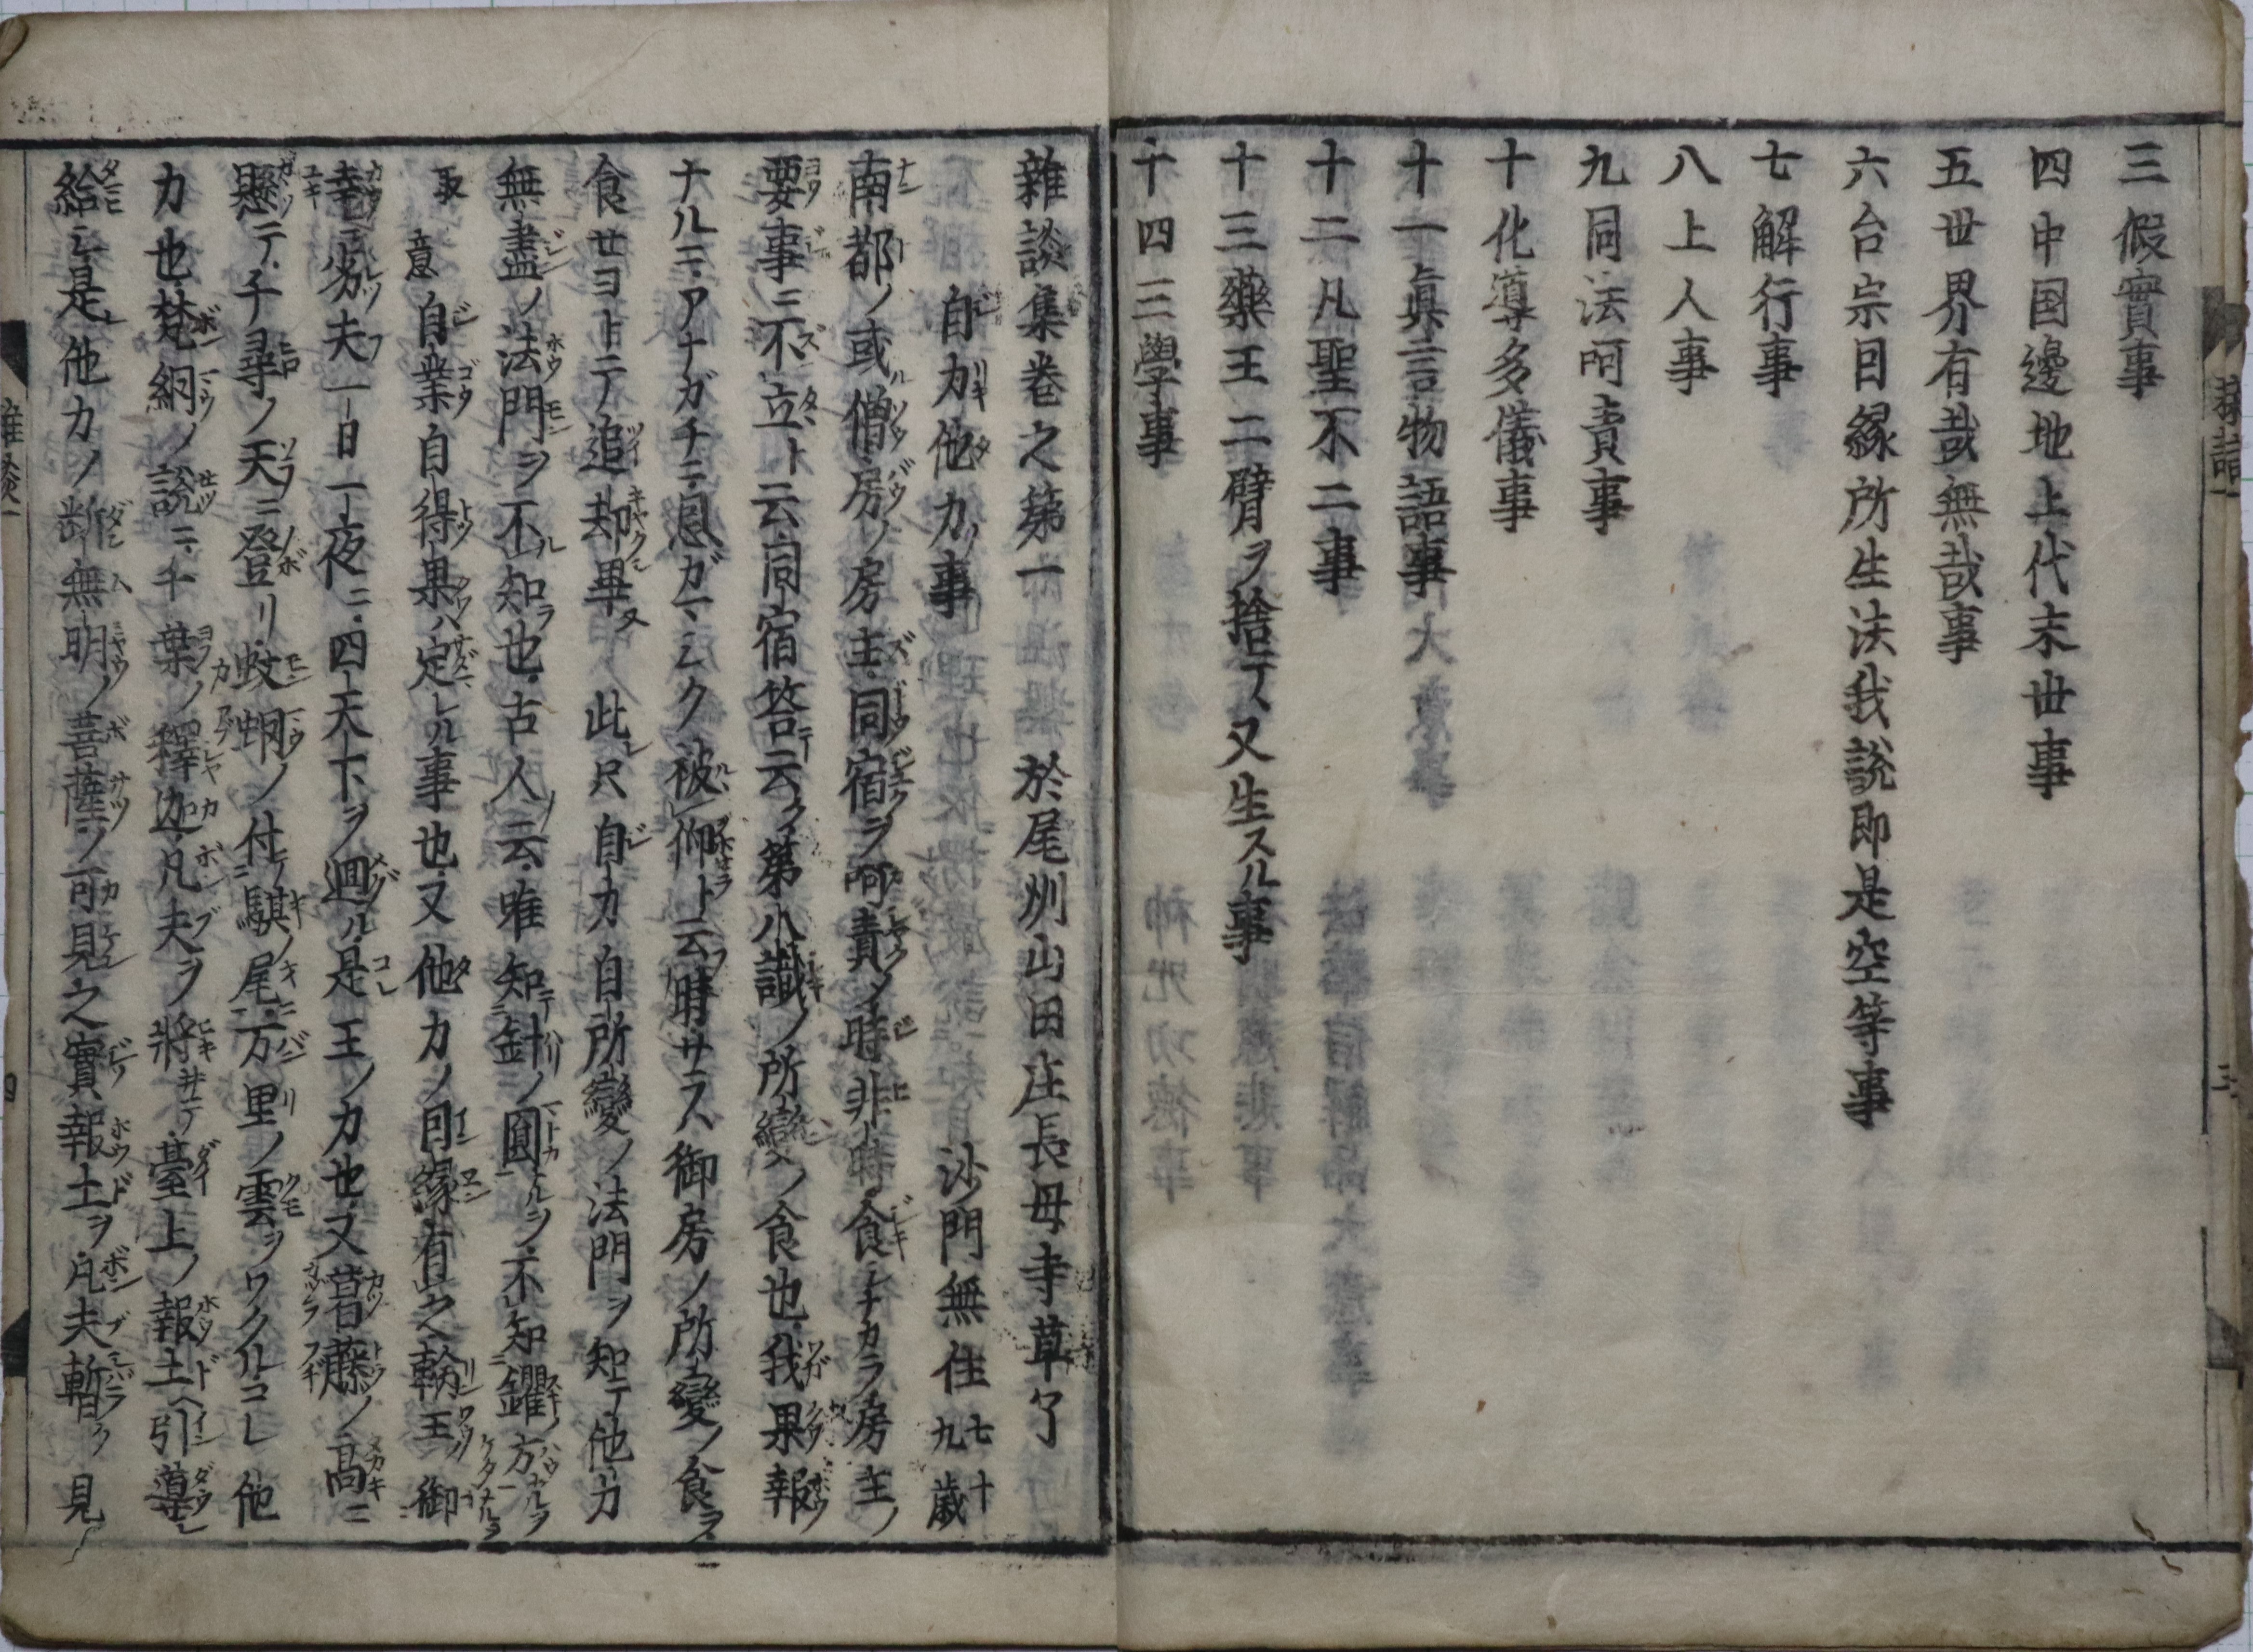 三假實事
四中国邊地上代末世事
五世界有哉無哉事
六台宗因縁所生法我説即是空等事
七解行事
八上人事
九同法呵責事
十化導多儀事
十一眞言物語事
十二凡聖不二事
十三藥王二臂ヲ捨テ、又生スル事
十四三學事
雜談集巻之第一　於尾州山田庄長母寺草了
自力他力ノ事　沙門無住七十九歳
南都ノ或僧房ノ房主同宿ヲ呵責ノ時非時食シナカラ房主ノ
要事ニ不立ト云同宿答云ク第八識ノ所變ノ食也我果報
ナルニアナガチニ恩ガマシク被仰ト云時サラハ御房ノ所變ノ食ヲ
食セヨトニテ追却畢ヌ此レ只自力自所變ノ法門ヲ知テ他力
無盡ノ法門ヲ不知也古人云唯知針ノ圓ナルヲ不知鑵方ナルヲ
取意自業自得果ハ定レル事也又他力ノ因縁有之輪王ノ御
幸ニ劣夫一日一夜ニ四天下ヲ廻ル是王ノ力也又葛藤ノ高ニ
懸テ千尋ノ天ニ登リ蚊蝄ノ付騏ノ尾万里ノ雲ヲワクルコレ他
力也梵網ノ説ニ千葉ノ釋迦凡夫ヲ將井テ臺上ノ報土ヘ引導シ
給シ是他力ノ断無明ノ菩薩ノ可見之實報土ヲ凡夫暫ク見